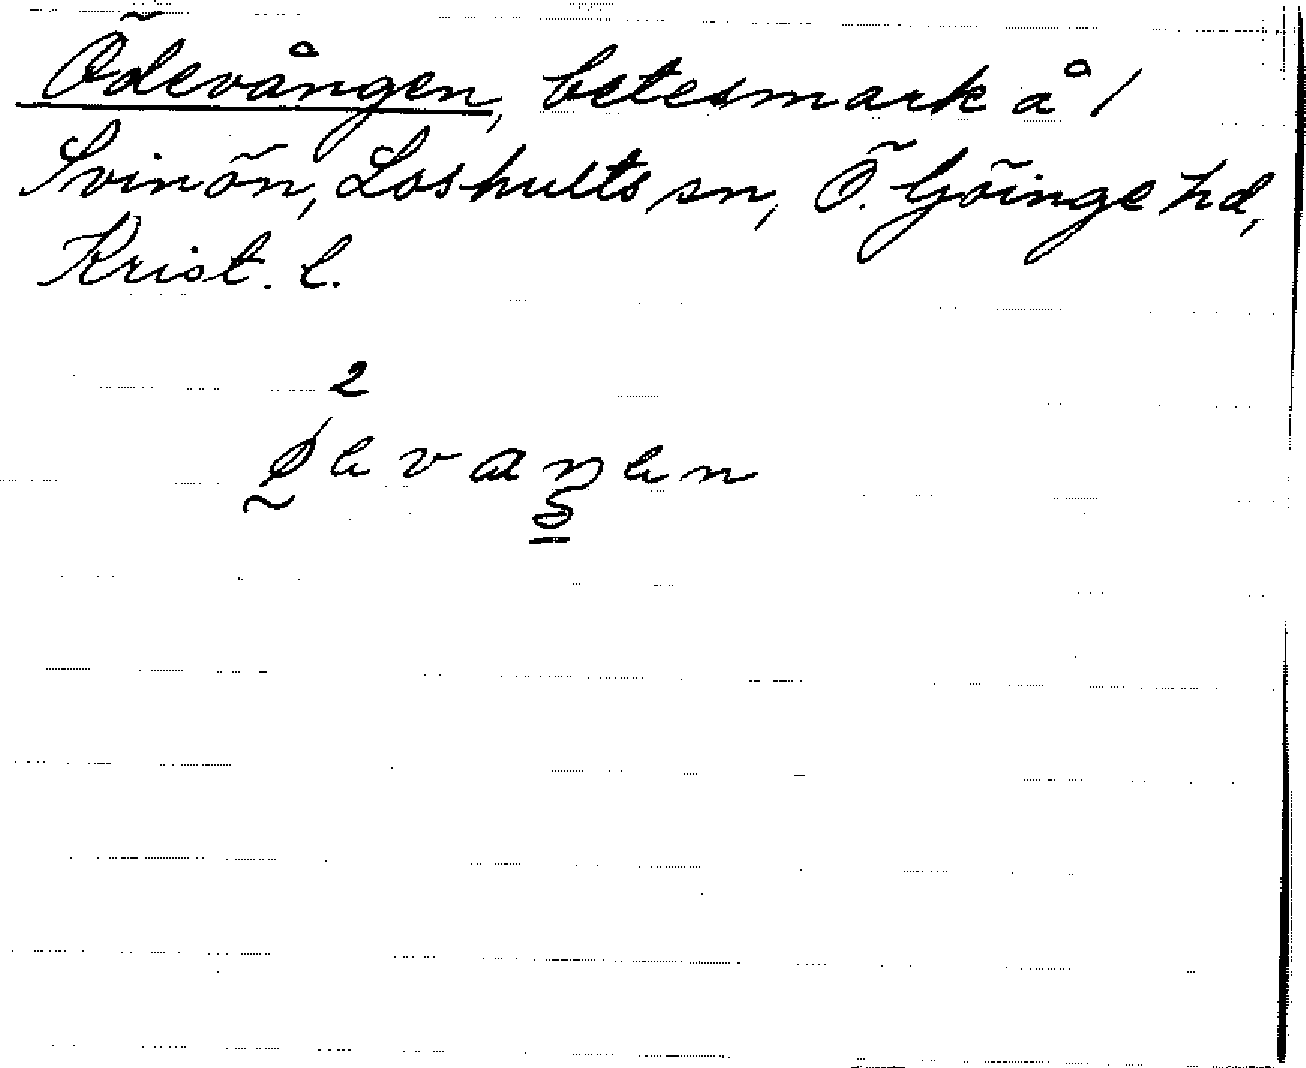 Ödevången, betesmark å 1
Svinön, Loshults sn, Ö. Göinge hd,
Krist. l.
2